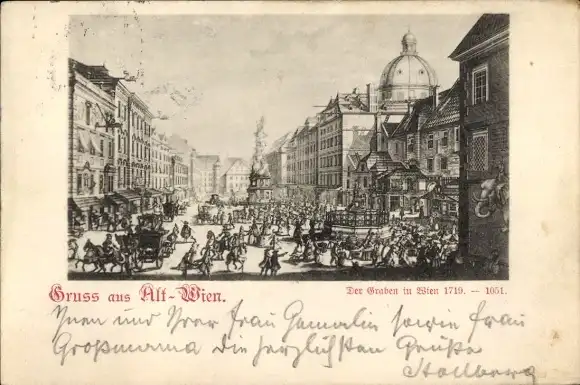 Gruss aus Alt-Wien.
Der Graben in Wien 1719. — 1051.
Ihnen und Ihrer Frau Gemalin sowie Frau
Großmama die herzlichsten Grüße
Stollberg